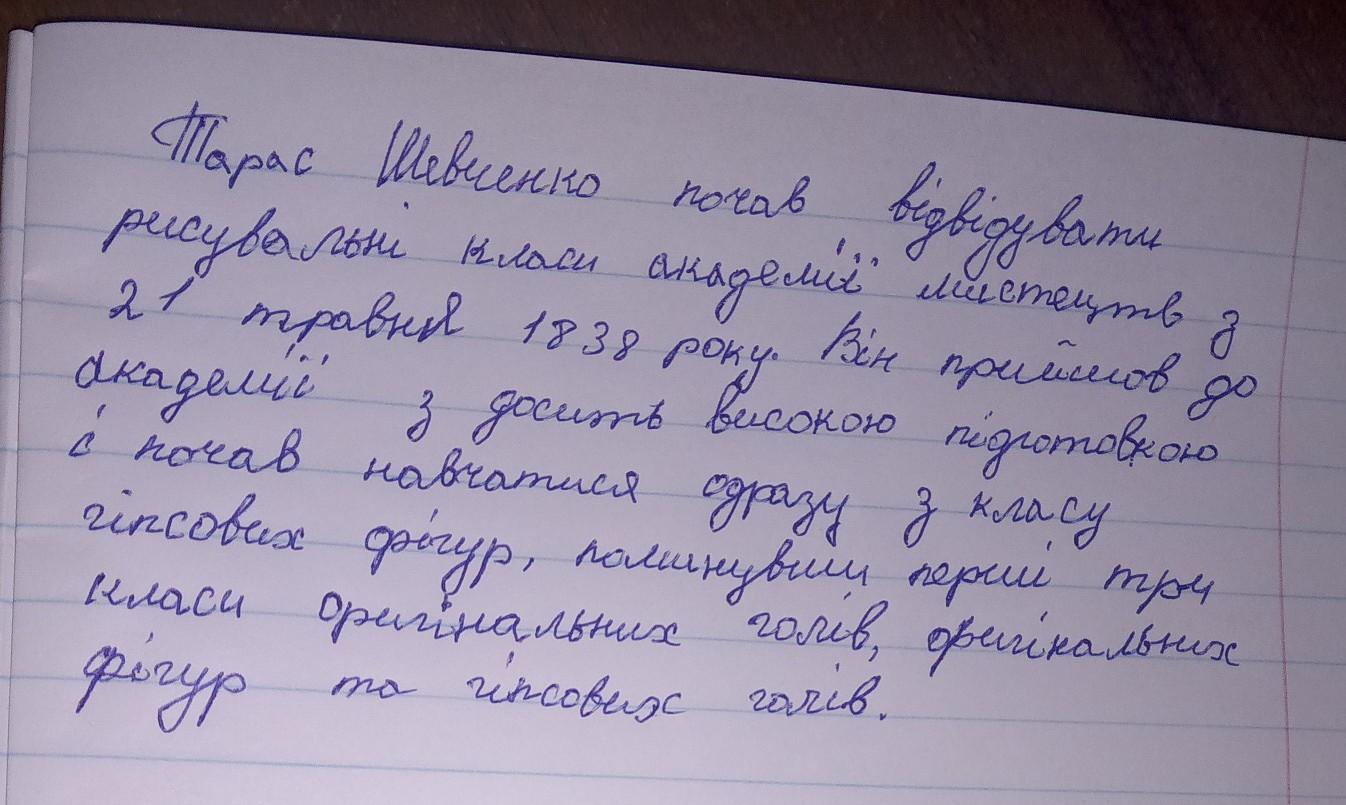 Тарас Шевченко почав відвідувати
рисувальні класи академії мистецтв з
21 травня 1838 року. Він прийшов до
академії з досить високою підготовкою
і почав навчатися одразу з класу
гіпсових фігур, поминувши перші три
класи оригінальних голів, оригінальних
фігур та гіпсових голів.